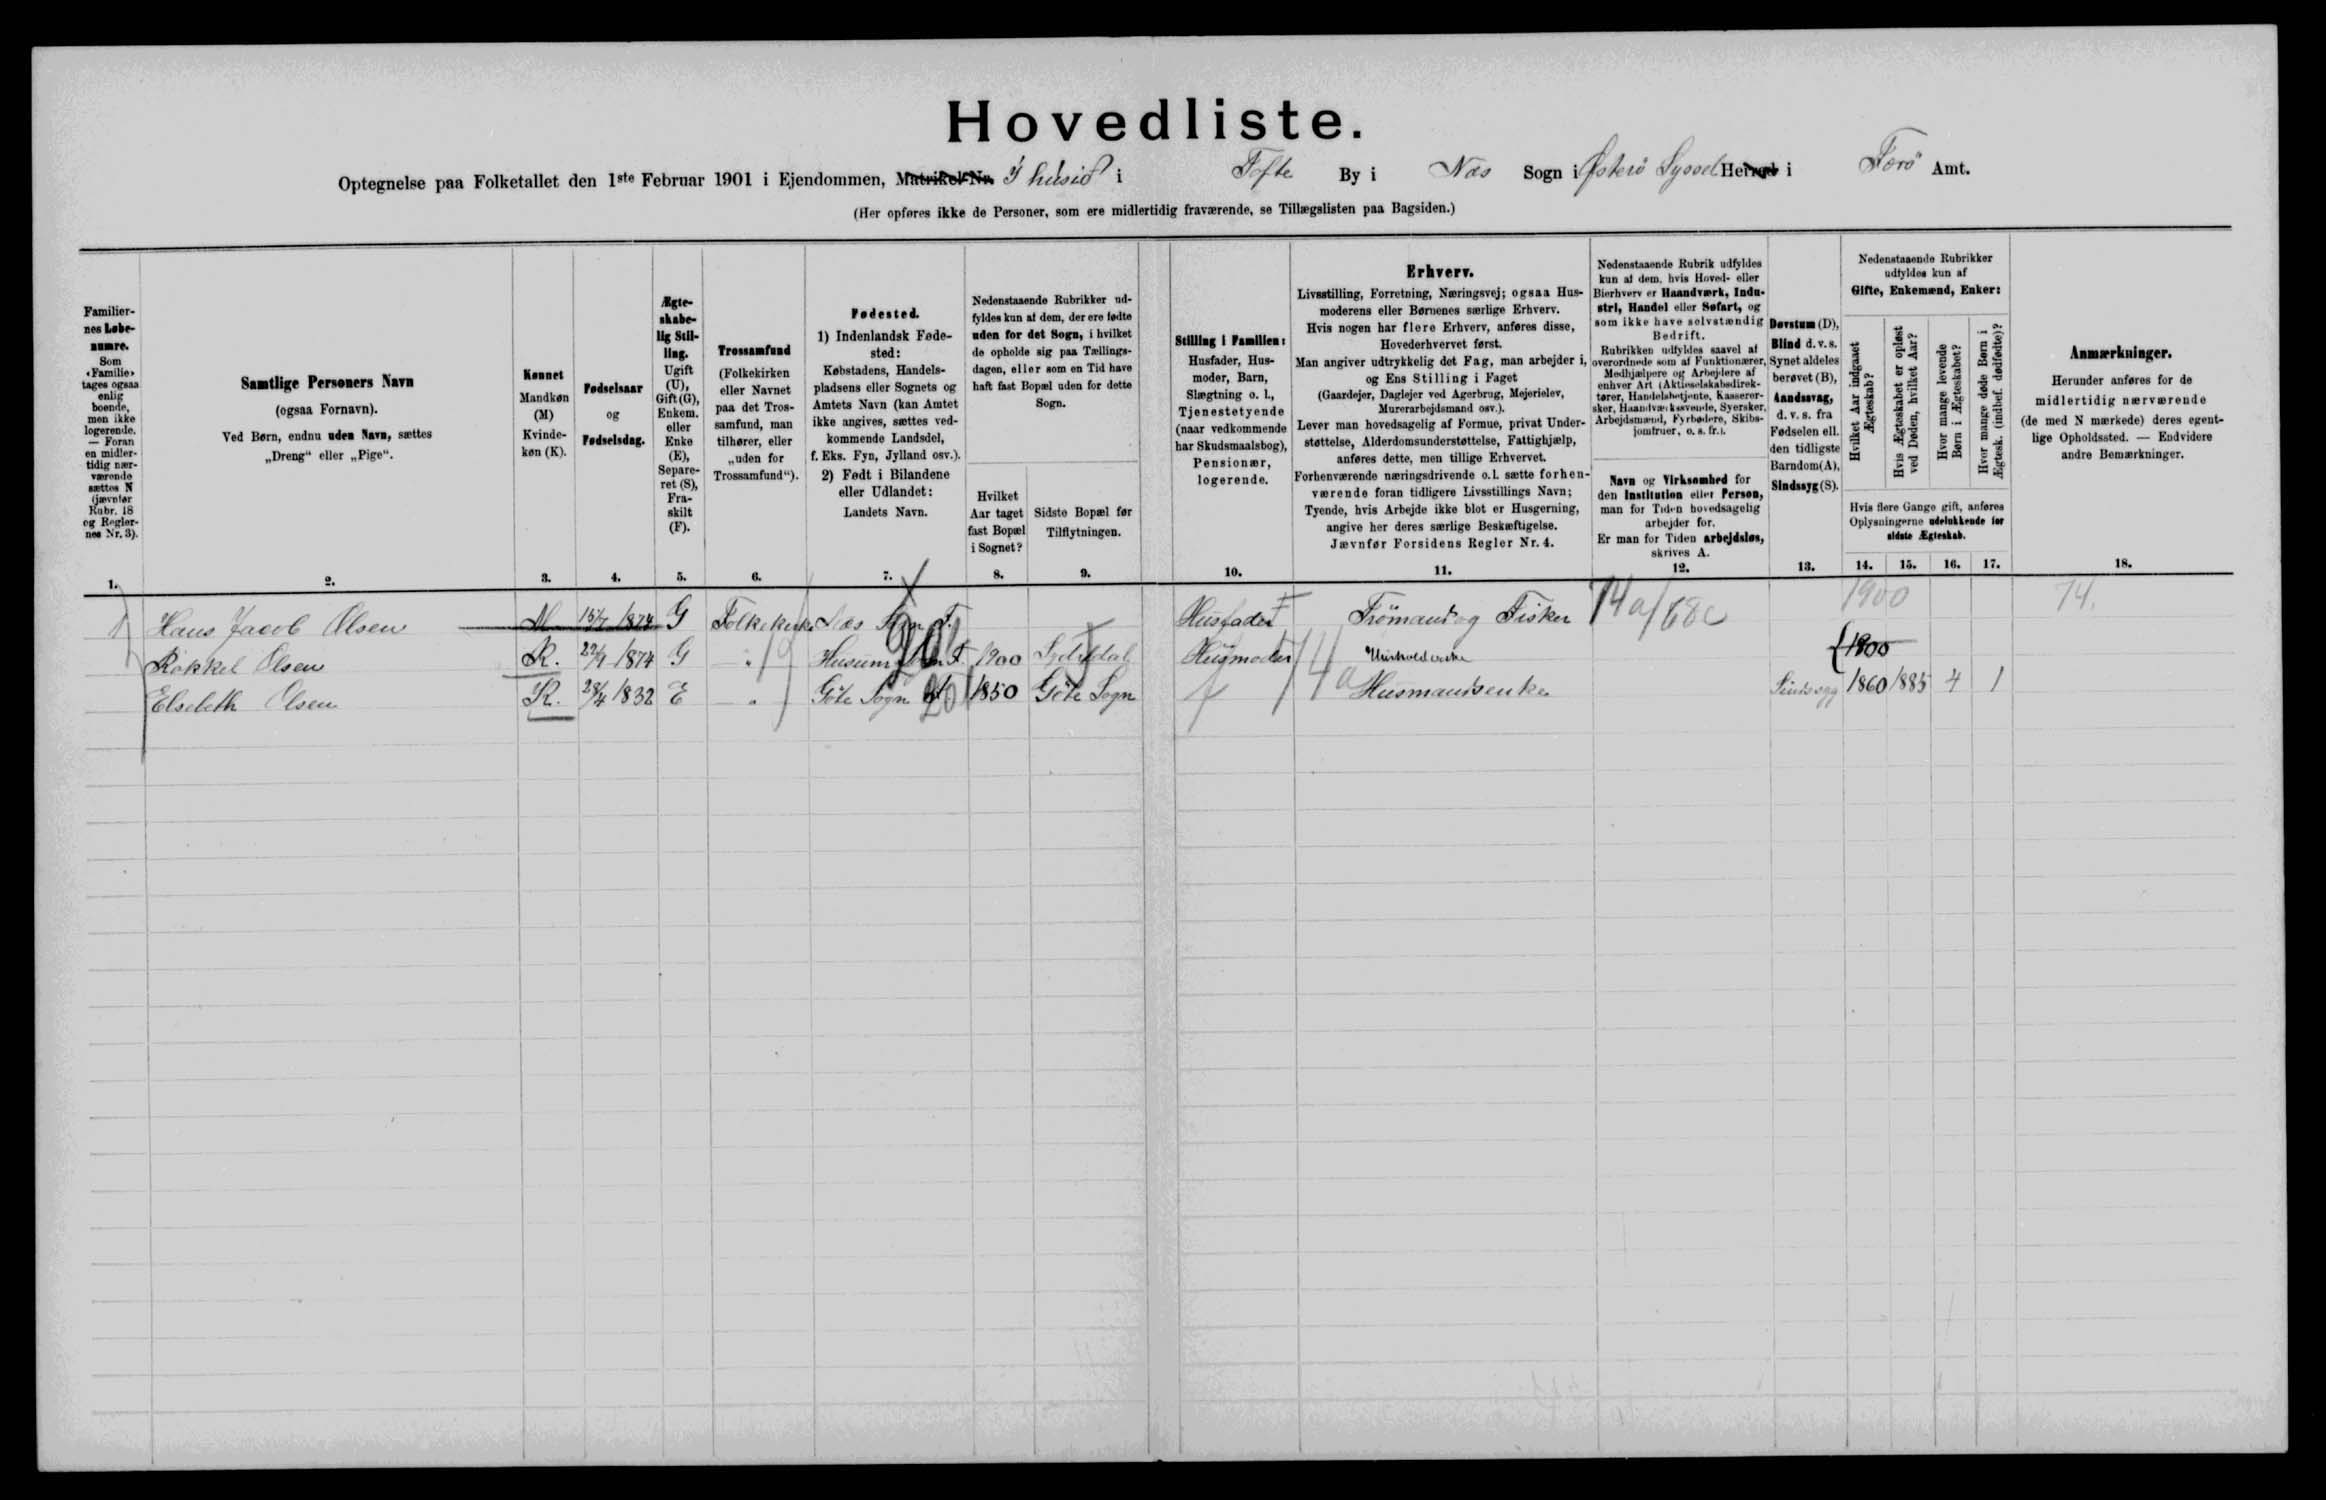 Hovedliste.
Optegnelse paa Folketallet den 1ste Februar 1901 i Ejendommen, Matrikel-Nr. I husid i Tofte By i Næs Sogn i Østerö Syssel Herred i Færö Amt.
(Her opføres ikke de Personer, som ere midlertidig fraværende, se Tillægslisten paa Bagsiden.)
Familier-
nes Løbe-
numre.
Som
«Familie»
tages ogsaa
enlig
boende,
men ikke
logerende.
— Foran
en midler-
tidig nær-
værende
sættes N
(jævnfør
Rubr. 18
og Regler-
nes Nr. 3).
1.
Samtlige Personers Navn
(ogsaa Fornavn).
Ved Børn, endnu uden Navn, sættes
„Dreng“ eller „Pige“.
2.
Kønnet
Mandkøn
(M)
Kvinde-
køn (K).
3.
Fødselsaar
og
Fødselsdag.
4.
Ægte-
skabe-
lig Stil-
ling.
Ugift
(U),
Gift (G),
Enkem.
eller
Enke
(E),
Separe-
ret (S),
Fra-
skilt
(F).
5.
Trossamfund
(Folkekirken
eller Navnet
paa det Tros-
samfund, man
tilhører, eller
„uden for
Trossamfund“).
6.
Fødested.
1) Indenlandsk Føde-
sted:
Købstadens, Handels-
pladsens eller Sognets og
Amtets Navn (kan Amtet
ikke angives, sættes ved-
kommende Landsdel,
f. Eks. Fyn, Jylland osv.).
2) Født i Bilandene
eller Udlandet:
Landets Navn.
7.
Nedenstaaende Rubrikker ud-
fyldes kun af dem, der ere fødte
uden for det Sogn, i hvilket
de opholde sig paa Tællings-
dagen, eller som en Tid have
haft fast Bopæl uden for dette
Sogn.
Hvilket
Aar taget
fast Bopæl
i Sognet?
8.
Sidste Bopæl før
Tilflytningen.
9.
Stilling i Familien:
Husfader, Hus-
moder, Barn,
Slægtning o. l.,
Tjenestetyende
(naar vedkommende
har Skudsmaalsbog),
Pensionær,
logerende.
10.
Erhverv.
Livsstilling, Forretning, Næringsvej; ogsaa Hus-
moderens eller Børnenes særlige Erhverv.
Hvis nogen har flere Erhverv, anføres disse,
Hovederhvervet først.
Man angiver udtrykkelig det Fag, man arbejder i,
og Ens Stilling i Faget
(Gaardejer, Daglejer ved Agerbrug, Mejerielev,
Murerarbejdsmand osv.).
Lever man hovedsagelig af Formue, privat Under-
støttelse, Alderdomsunderstøttelse, Fattighjælp,
anføres dette, men tillige Erhvervet.
Forhenværende næringsdrivende o. l. sætte forhen-
værende foran tidligere Livsstillings Navn;
Tyende, hvis Arbejde ikke blot er Husgerning,
angive her deres særlige Beskæftigelse.
Jævnfør Forsidens Regler Nr. 4.
11.
Nedenstaaende Rubrik udfyldes
kun af dem, hvis Hoved- eller
Bierhverv er Haandværk, Indu-
stri, Handel eller Søfart, og
som ikke have selvstændig
Bedrift.
Rubrikken udfyldes saavel af
overordnede som af Funktionærer,
Medhjælpere og Arbejdere af
enhver Art (Aktieselskabsdirek-
tører, Handelsbetjente, Kasserer-
sker, Haandværkssvende, Syersker,
Arbejdsmænd, Fyrbødere, Skibs-
jomfruer, o. s. fr.).
Navn og Virksomhed for
den Institution eller Person,
man for Tiden hovedsagelig
arbejder for.
Er man for Tiden arbejdsløs,
skrives A.
12.
Døvstum (D),
Blind d. v. s.
Synet aldeles
berøvet (B),
Aandssvag,
d. v. s. fra
Fødselen ell.
den tidligste
Barndom (A),
Sindssyg (S).
13.
Nedenstaaende Rubrikker
udfyldes kun af
Gifte, Enkemænd, Enker:
Hvilket Aar indgaaet
Ægteskab?
Hvis Ægteskabet er opløst
ved Døden, hvilket Aar?
Hvor mange levende
Børn i Ægteskabet?
Hvor mange døde Børn i
Ægtesk. (indbef. dødfødte)?
Hvis flere Gange gift, anføres
Oplysningerne udelukkende for
sidste Ægteskab.
14. 15. 16. 17.
Anmærkninger.
Herunder anføres for de
midlertidig nærværende
(de med N mærkede) deres egent-
lige Opholdssted. — Endvidere
andre Bemærkninger.
18.
1 Hans Jacob Olsen M 15/7 1874 G Folkekirke Næs Sogn F. Husfader Trömand og Fisker 74a/68c 1900 74.
Rakkel Olsen K. 29/9 1874 G — „ Husum F. 1900 Husmoder {1900
Elsebeth Olsen K. 28/4 1832 E — „ Göte Sogn 1850 Göte Sogn Husmandsenke Sindssyg 1860 1885 4 1